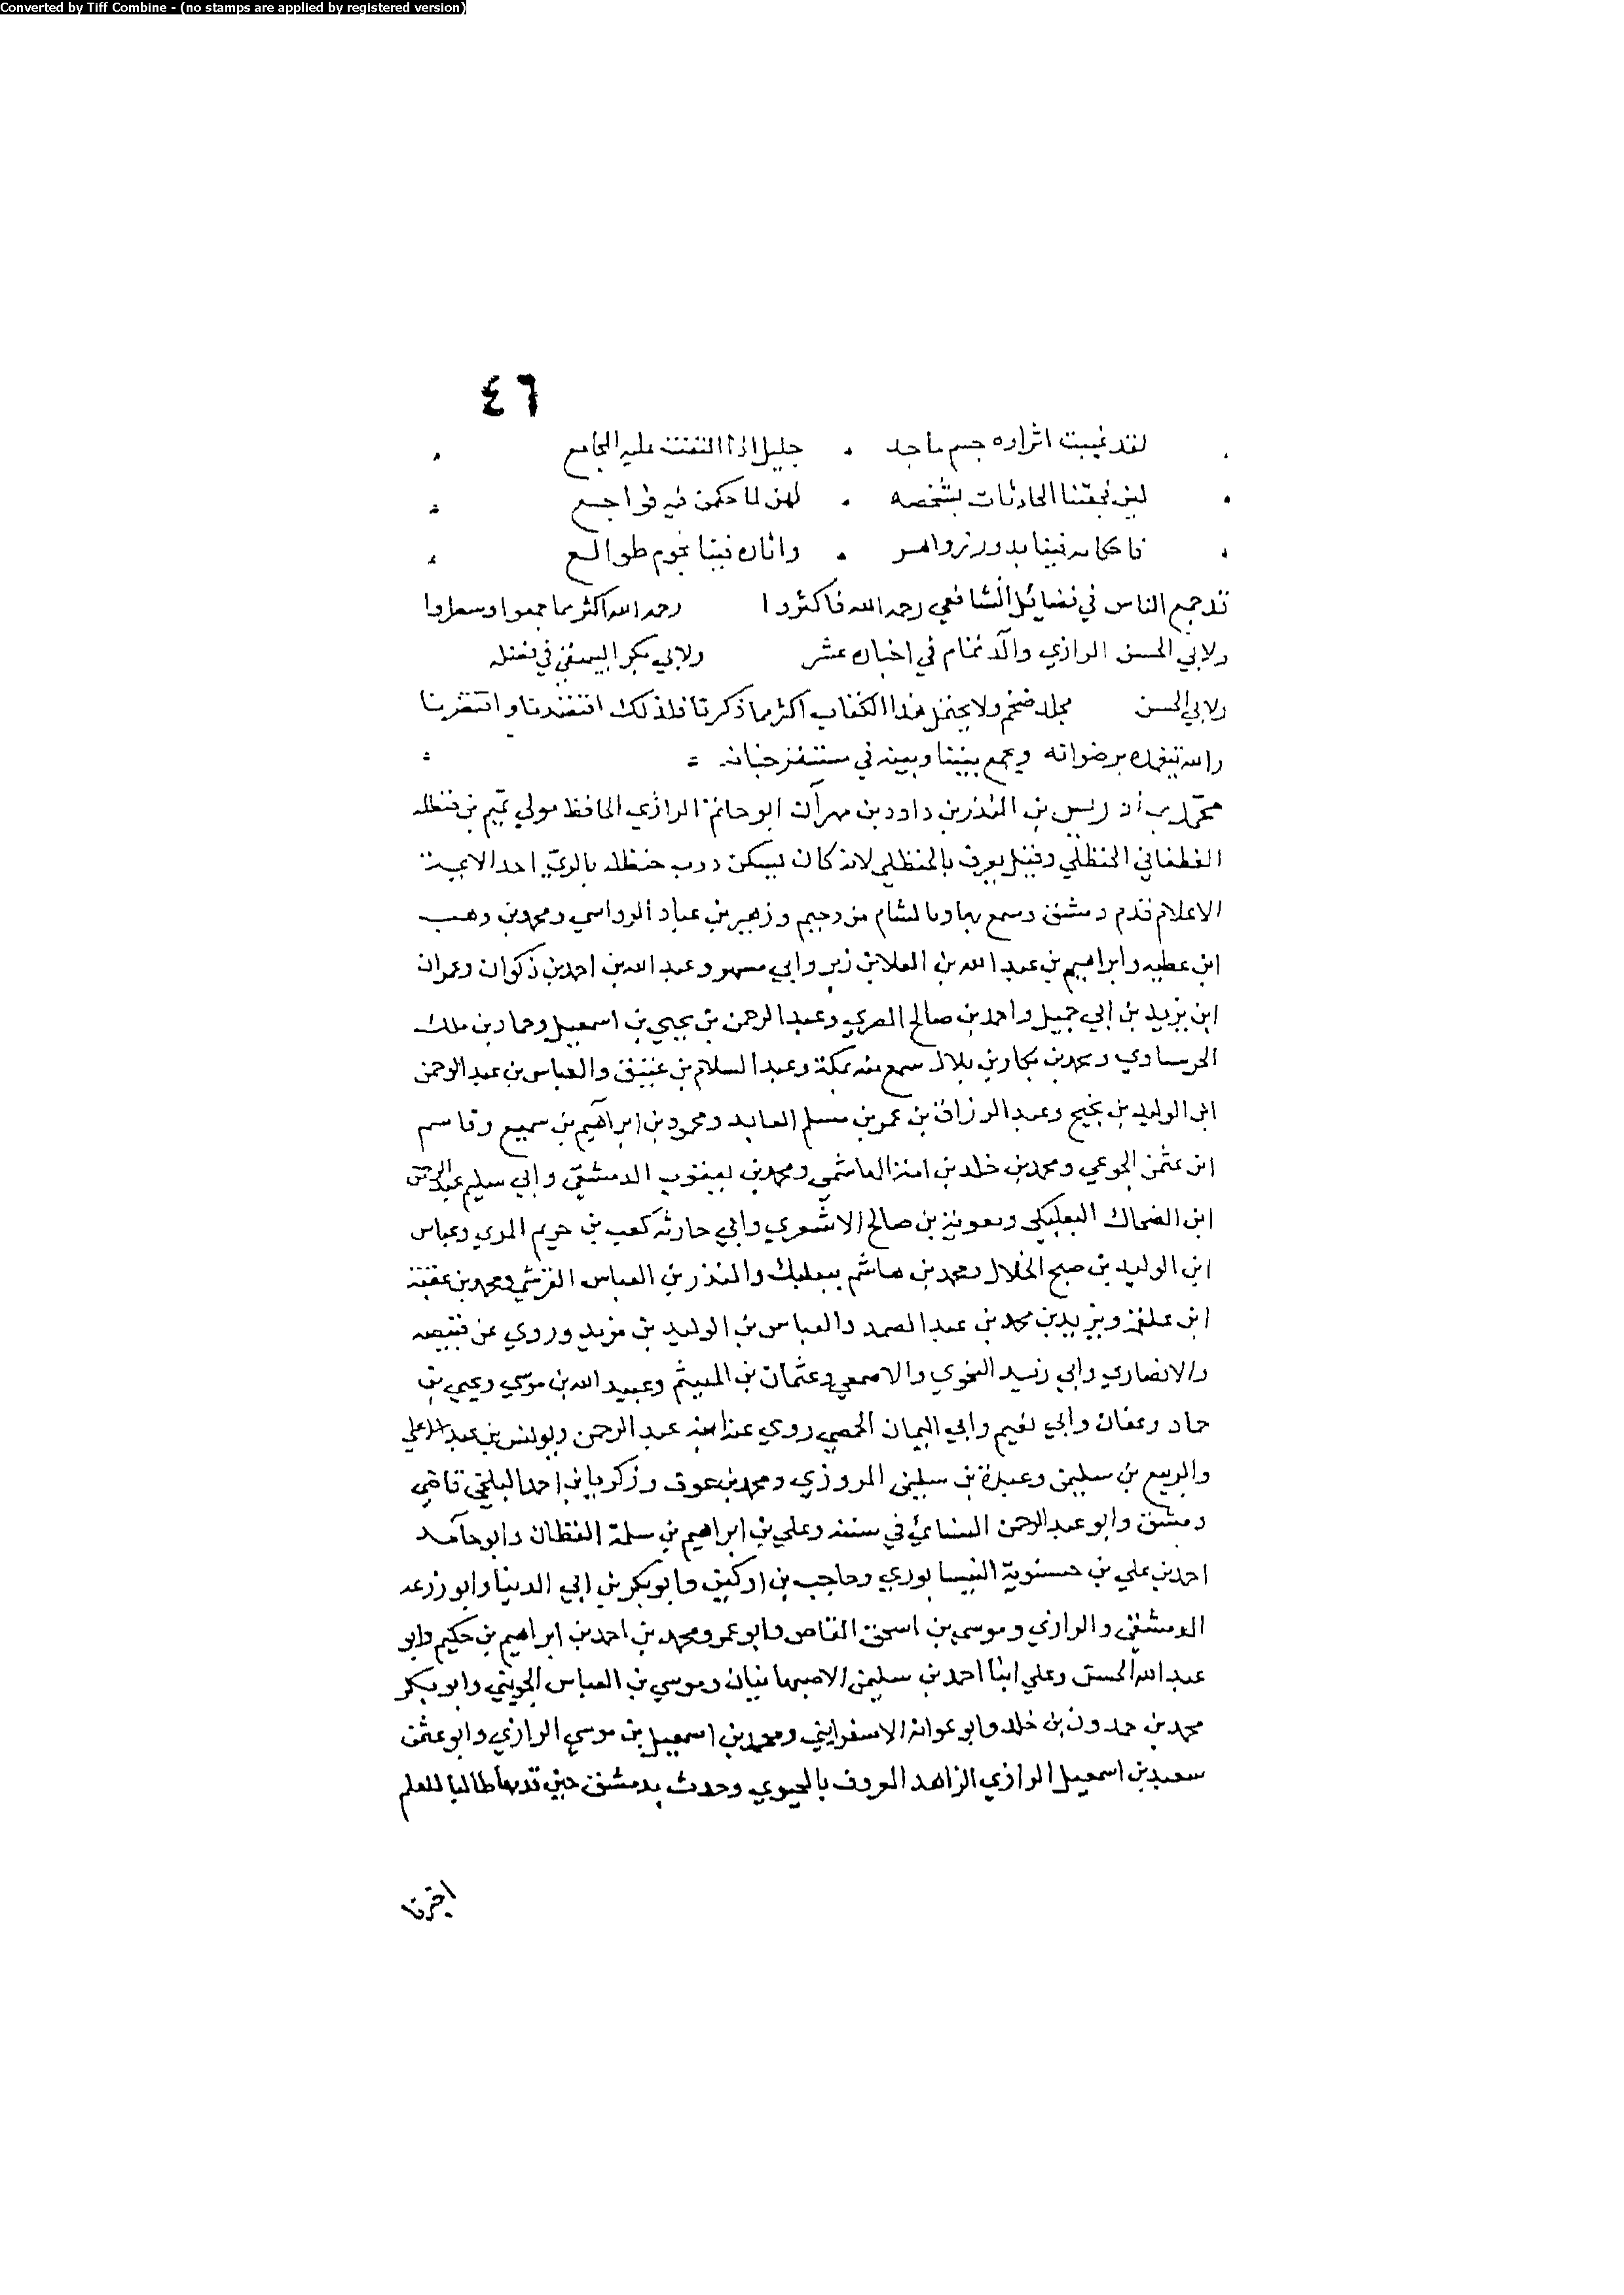 Converted by Tiff Combine - (no stamps are applied by registered version)
٤٦
لقد غيبت اثراره جسم ماجد . جليل اذا التفت عليه المجامع
لين فجعتنا الحادثات بشخصه . لهن لما حكمن فيه فواجع
فاحكامه فينا بدور زواهر . واثاره فينا نجوم طوالع
قد جمع الناس في فضائل الشافعي رحمه الله فاكثروا رحمه الله اكثر مما جمعوا وسطروا
ولابي الحسن الرازي والد تمام في اخباره عشر ولابي بكر البيهقي في فضله
ولابي الحسن مجلد ضخم ولا يحتمل هذا الكتاب اكثر مما ذكرنا فلذلك اقتصدنا واقتصرنا
والله يتغمده برضوانه ويجمع بيننا وبينه في مستقر جنانه
محمد بن ادريس بن المنذر بن داود بن مهران ابو حاتم الرازي الحافظ مولي تميم بن حنظله
الغطفاني الحنظلي وقيل يعرف بالحنظلي لانه كان يسكن درب حنظله بالري احد الايمة
الاعلام قدم دمشق وسمع بها وبالشام من دحيم وزهير بن عباد الرواسي ومحمد بن وهب
ابن عطيه وابراهيم بن عبد الله بن العلا بن زبر وابي مسهر وعبد الله بن احمد بن ذكوان وعمران
ابن يزيد بن ابي جميل واحمد بن صالح المصري وعبد الرحمن بن يحيي بن اسمعيل وحماد بن ملك
الحرستاوي ومحمد بن بكار بن بلال سمع منه بمكة وعبد السلام بن عتيق والعباس بن عبد الرحمن
ابن الوليد بن نجيح وعبد الرزاق بن عمر بن مسلم العابد ومحمود بن ابراهيم بن سميع وقاسم
ابن عثمن الجوعي ومحمد بن خلد بن امة الهاشمي ومحمد بن يعقوب الدمشقي وابي سليم عبد الرحمن
ابن الضحاك البعلبكي ومعوية بن صالح الاشعري وابي حارثه كعب بن خريم المري وعباس
ابن الوليد بن صبح الخلال ومحمد بن هاشم ببعلبك والمنذر بن العباس القرشي ومحمد بن عقبة
ابن علقمة ويزيد بن محمد بن عبد الصمد والعباس بن الوليد بن مزيد وروي عن قبيصه
والانصاري وابي زيد النحوي والاصمعي وعثمان بن الهيثم وعبيد الله بن موسي ويحيي بن
حماد وعفان وابي نعيم وابي اليمان الحمصي روي عنه ابنه عبد الرحمن ويونس بن عبد الاعلي
والربيع بن سليمن وعبدة بن سليمن المروزي ومحمد بن عوف وزكريا بن احمد البلخي قاضي
دمشق وابو عبد الرحمن النسائي في سننه وعلي بن ابراهيم بن سلمة القطان وابو حامد
احمد بن علي بن حسنوية النيسابوري وحاجب بن اركين وابو بكر بن ابي الدنيا وابو زرعه
الدمشقي والرازي وموسي بن اسحق القاص وابو عمرو محمد بن احمد بن ابراهيم بن حكيم وابو
عبد الله الحسن وعلي ابنا احمد بن سليمن الاصبهانيان وموسي بن العباس الجويني وابو بكر
محمد بن حمدون بن خلد وابو عوانة الاسفرايني ومحمد بن اسمعيل بن موسي الرازي وابو عثمن
سعيد بن اسمعيل الرازي الزاهد المعروف بالحيري وحدث بدمشق حين قدمها طالبا للعلم
اخبرنا